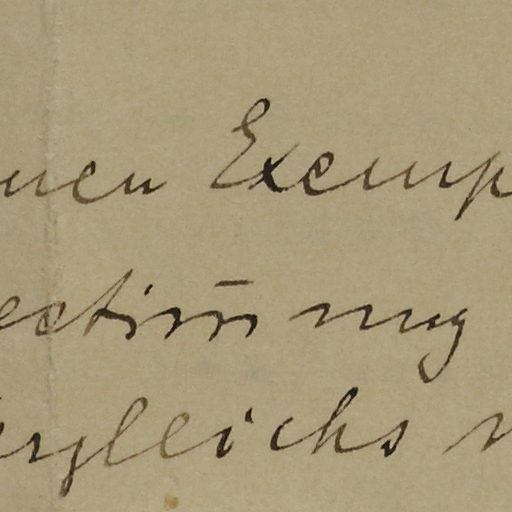 nen Exemp
ectiom̄ mug
ergleichs